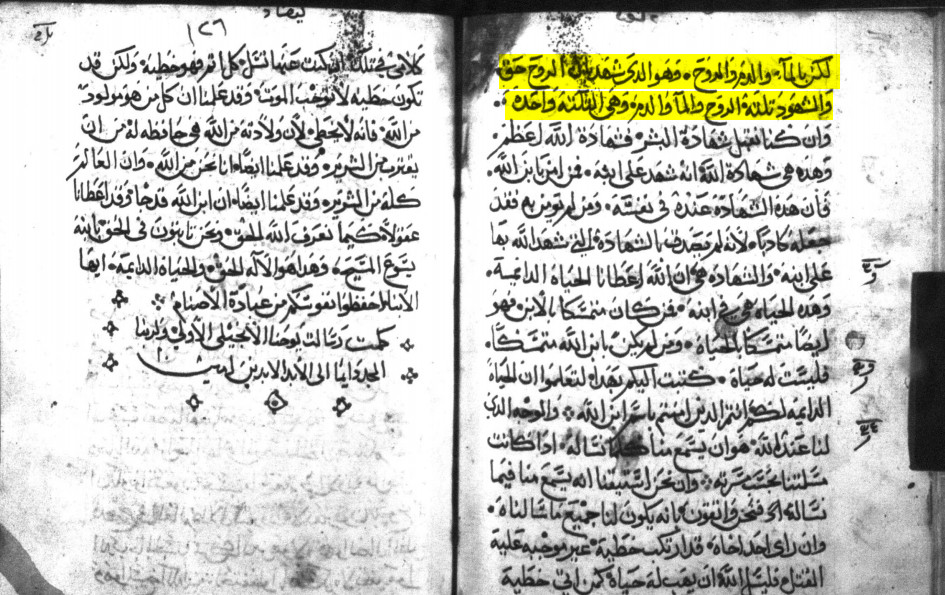 لكن بالمآء والدم والروح • وهو الذي شهد بان الروح حق
والشهود ثلثة الروح والمآ والدم وهي الثلثة واحده
وان كنا نقبل شهادة البشر فشهادة الله اعظم
وهذه هي شهادة الله انه شهد على ابنه • فمن امن بابن الله
فان هذه الشهادة عنده في نفسه • ومن لم يومن به فقد
جعله كاذبا • لانه لم يصدق بالشهادة التي شهد الله بها
على ابنه • والشهاده هي ان الله اعطانا الحياة الدايمة
وهذه الحياة هي في ابنه • فمن كان متمسكا بالابن فهو
ايضا متمسكا بالحياة • ومن لم يكن بابن الله متمسكا
فليست له حياة • كتبت اليكم بهذا لتعلموا ان الحياة
الدايمه لكم انتم الذين امنتم باسم ابن الله • والوجه الذي
لنا عند الله هو ان يسمع منا كلما نساله اذا كانت
مسلتنا بحسب مسرته • وان نحن استيقنا انه يسمع منا فيما
نساله فنحن واثقون بانه يكون لنا جميع ما سالناه •
وان راى احد اخاه قد ارتكب خطية غير موجبه عليه
القتل فليسل الله ان يهب له حياة كمن اتى خطية
١٢٦
كلامي في تلك ان كنت عنها تسل كل اثم فهو خطية • ولكن قد
تكون خطيه لا توجب الموت • وقد علمنا ان كل من هو مولود
من الله فانه لا يخطي لان ولادته من الله هي حافظه له من ان
يقترب منه الشرير • وقد علمنا ايضا اننا نحن من الله • وان العالم
كله من الشرير • وقد علمنا ايضا ان ابن الله قد جا وقد اعطانا
عقولا كيما نعرف الله الحق • ونحن ثابتون في الحق بابنه
يسوع المسيح • وهذا هو الاله الحق والحياة الدايمه • ايها
الابنا احفظوا نفوسكم من عبادة الاصنام
كملت رسالة يوحنا الانجيلي الاولى ولربنا
الحمد دايما الى الابد الابدين امين